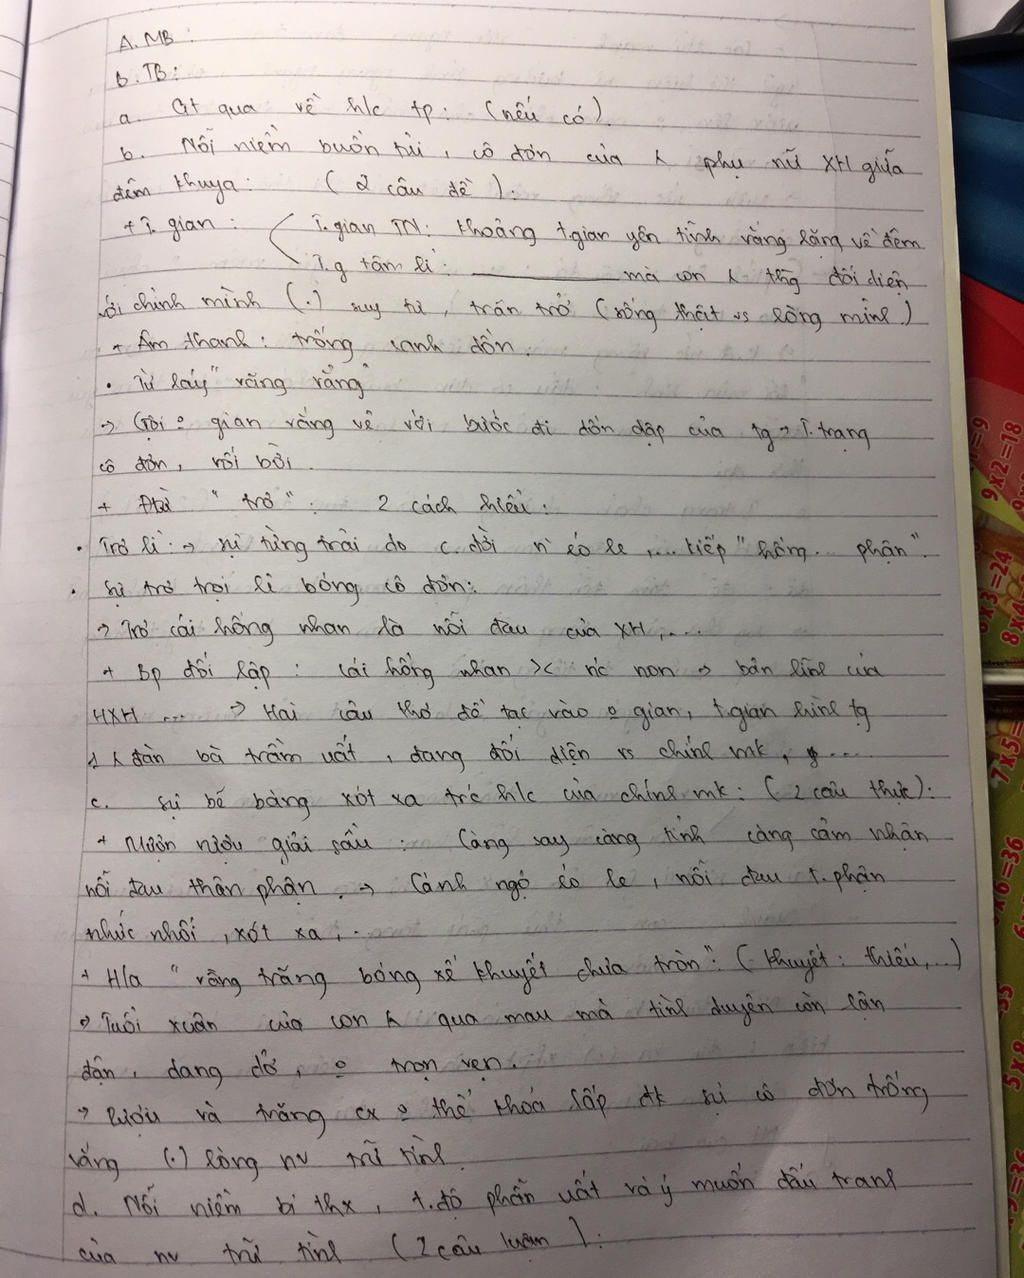 A. MB :
b. TB :
a. Gt qua về h/c tp : (nếu có).
b. Nỗi niềm buồn tủi, cô đơn của phụ nữ XH giữa
đêm khuya : ( 2 câu đề ) :
+ T. gian : T. gian TN : khoảng t.gian yên tĩnh vắng lặng về đêm
T. g tâm lí : mà con đối diện
với chính mình (.) suy tư, trăn trở (sống thật vs lòng mình)
+ Âm thanh : trống canh dồn.
• Từ láy "văng vẳng"
-> Gợi o gian vắng vẻ với bước đi dồn dập của tg -> T. trạng
cô đơn, rối bời.
+ Đtừ "trơ" : 2 cách hiểu :
• Trơ lì : -> sự từng trải do c. đời n` éo le, ... kiếp "hồng. phận".
• sự trơ trọi lẻ bóng cô đơn :
-> Trơ cái hồng nhan là nỗi đau của XH, ...
+ Bp đối lập : cái hồng nhan >< nc non -> bản lĩnh của
HXH ... -> Hai câu thơ đề tạc vào o gian, t.gian hình tg
1 đàn bà trầm uất, đang đối diện vs chính mk, ...
c. sự bẽ bàng xót xa trc h/c của chính mk : ( 2 câu thực) :
+ Mượn rượu giải sầu : Càng say càng tỉnh càng cảm nhận
nỗi đau thân phận. -> Cảnh ngộ éo le, nỗi đau t. phận
nhức nhối, xót xa, .
+ H/a "vầng trăng bóng xế khuyết chưa tròn" : ( khuyết : thiếu, ...)
-> Tuổi xuân của con qua mau mà tình duyên còn lận
đận, dang dở, o trọn vẹn.
-> Rượu và trăng cx o thể khoả lấp đk sự cô đơn trống
vắng (.) lòng nv trữ tình.
d. Nỗi niềm bi thg, t. độ phẫn uất và ý muốn đấu tranh
của nv trữ tình ( 2 câu luận ) :